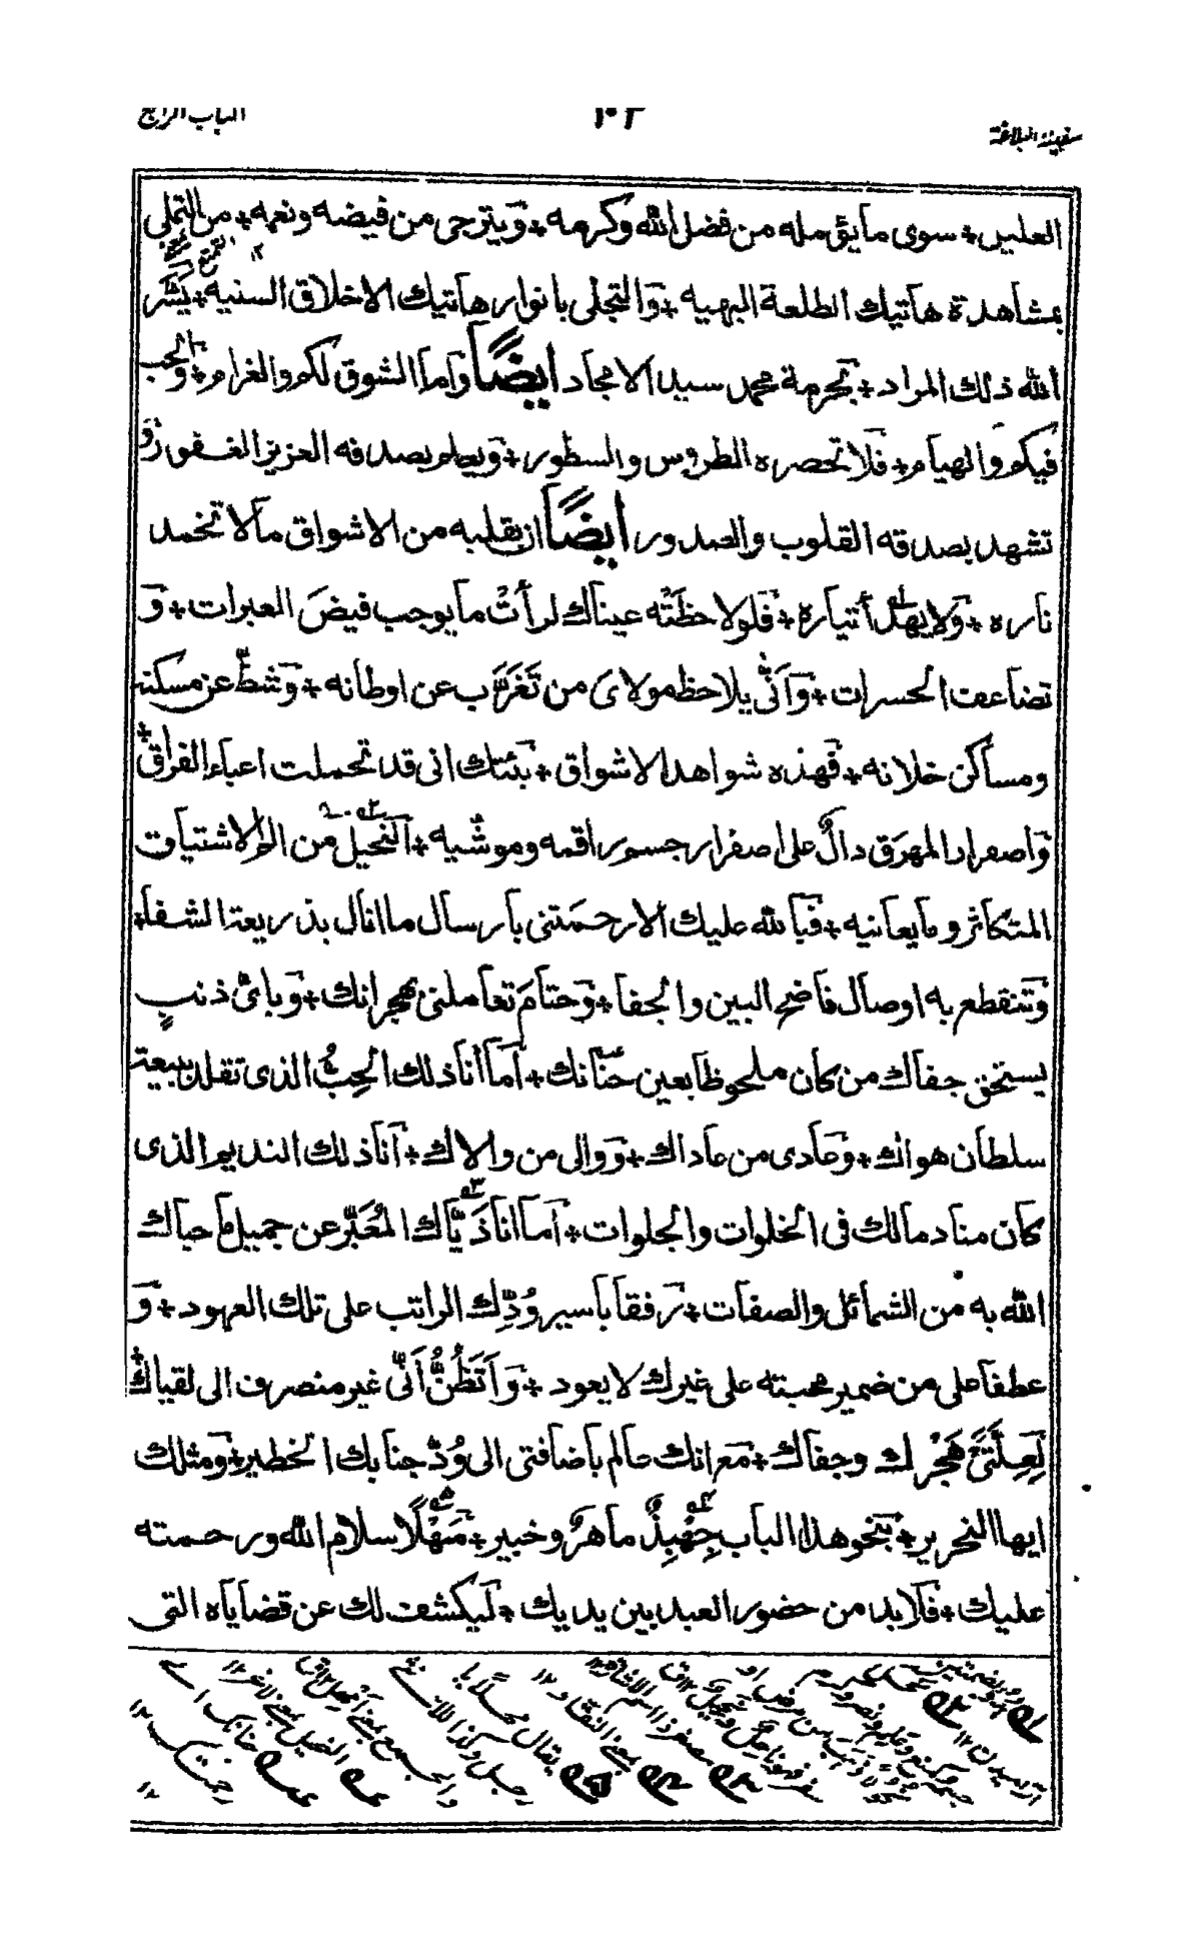 الباب الرابع
١٠٢
سفينة البلاغة
العليل + سوى ما يؤمله من فضل الله وكرمه + ويترجى من فيضه ونعمه + من التملى
بمشاهدة هاتيك الطلعة البهيه + والتجلى بانوار هاتيك الاخلاق السنيه + يَسَّر
الله ذلك المراد + بحرمة محمد سيد الامجاد ايضاً واما الشوق لكم والغرام + والحب
فيكم والهيام + فلا تحصره الطروس والسطور + ويعلم بصدقه العزيز الغفور + و
تشهد بصدقه القلوب والصدور ايضاً ان بقلبه من الاشواق مالا تخمد
ناره + ولا يهدأ تياره + فلو لاحظَتْه عيناك لرأتْ ما يوجب فيضَ العبرات + و
تضاعف الحسرات + وَاَنّى يلاحظ مولاى من تَغَرَّب عن اوطانه + وشطّ عن مسكنه
ومساكن خلانه + فهذه شواهد الاشواق + بئتك انى قد تحملت اعباء الفراق +
واصفرار المهرَق دالٌ على اصفرار جسم راقمه وموشّيه + النحيل من الم الاشتياق
المتكاثر وما يعانيه + فبالله عليك الا رحمتنى بارسال ما انال بذريعة الشفا +
وتنقطع به اوصال فاضح البين والجفا + وحتامَ تعاملنى بهجرانك + وباىّ ذنبٍ
يستحق جفاك من كان ملحوظا بعين حنّانك + اما انا ذلك الحِبُّ الذى تقلد ببيعة
سلطان هواك + وعادى من عاداك + ووالى من والاك + انا ذلك النديم الذى
كان منادمالك فى الخلوات والجلوات + اما انا ذَيّاك المُعَبِّر عن جميل ما حباك
الله به من الشمائل والصفات + رفقا باسير وُدِّك الراتب على تلك العهود + و
عطفا على من ضمير محبته على غيرك لا يعود + وَاَتَظُنُّ اَنِّى غير منصرف الى لقياك +
لِعِلَّتَىْ هَجْرك وجفاك + مع انك عالم باضافتى الى وُدّ جنابك الخطير + ومثلك
ايها النحرير + بنحو هذا الباب جِهْبِذٌ ماهرٌ وخبير + مَهْلًا سلام الله ورحمته
عليك + فلا بد من حضور العبد بين يديك + ليكشف لك عن قضاياه التى